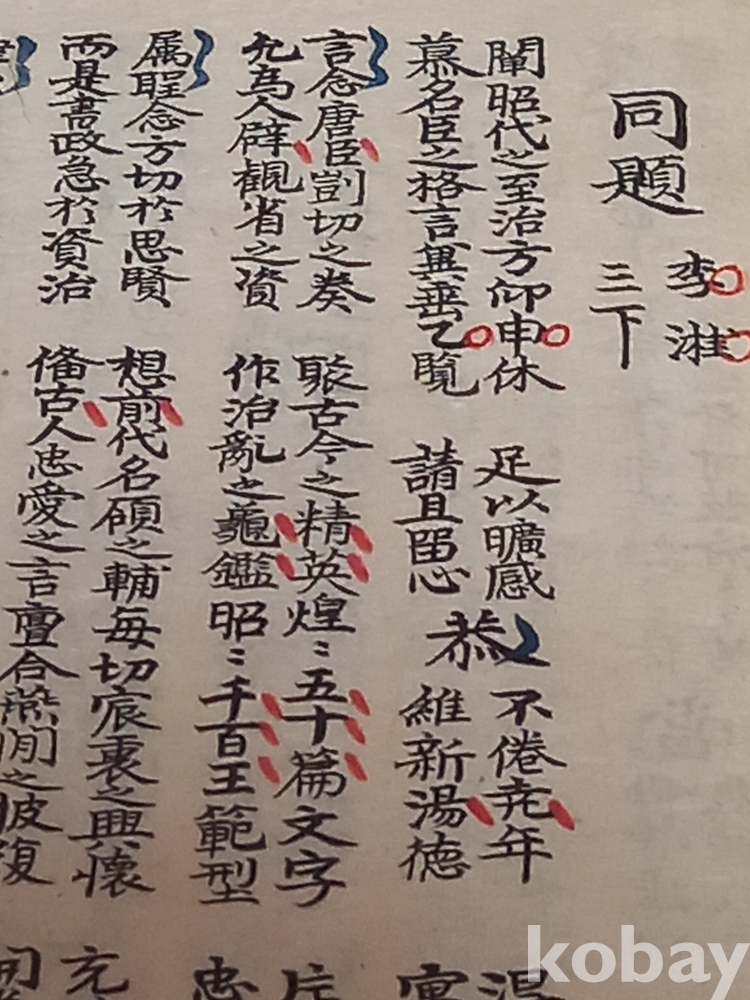 同題
李
三下
闡昭代之至治方仰申休
慕名臣之格言異垂乙覧
足以曠感
請且留心
恭
不倦尭年
維新湯德
言念唐臣剴切之奏
允為人辟觀省之資
聚古今之精英煌〻五十篇文字
作治亂之龜鑑昭〻千百王範型
属聖念方切於思賢
而是書政急於資治
想前代名碩之輔每切宸衷之興懷
俻古人忠愛之言亶合燕閒之披復
充
忠
kobay